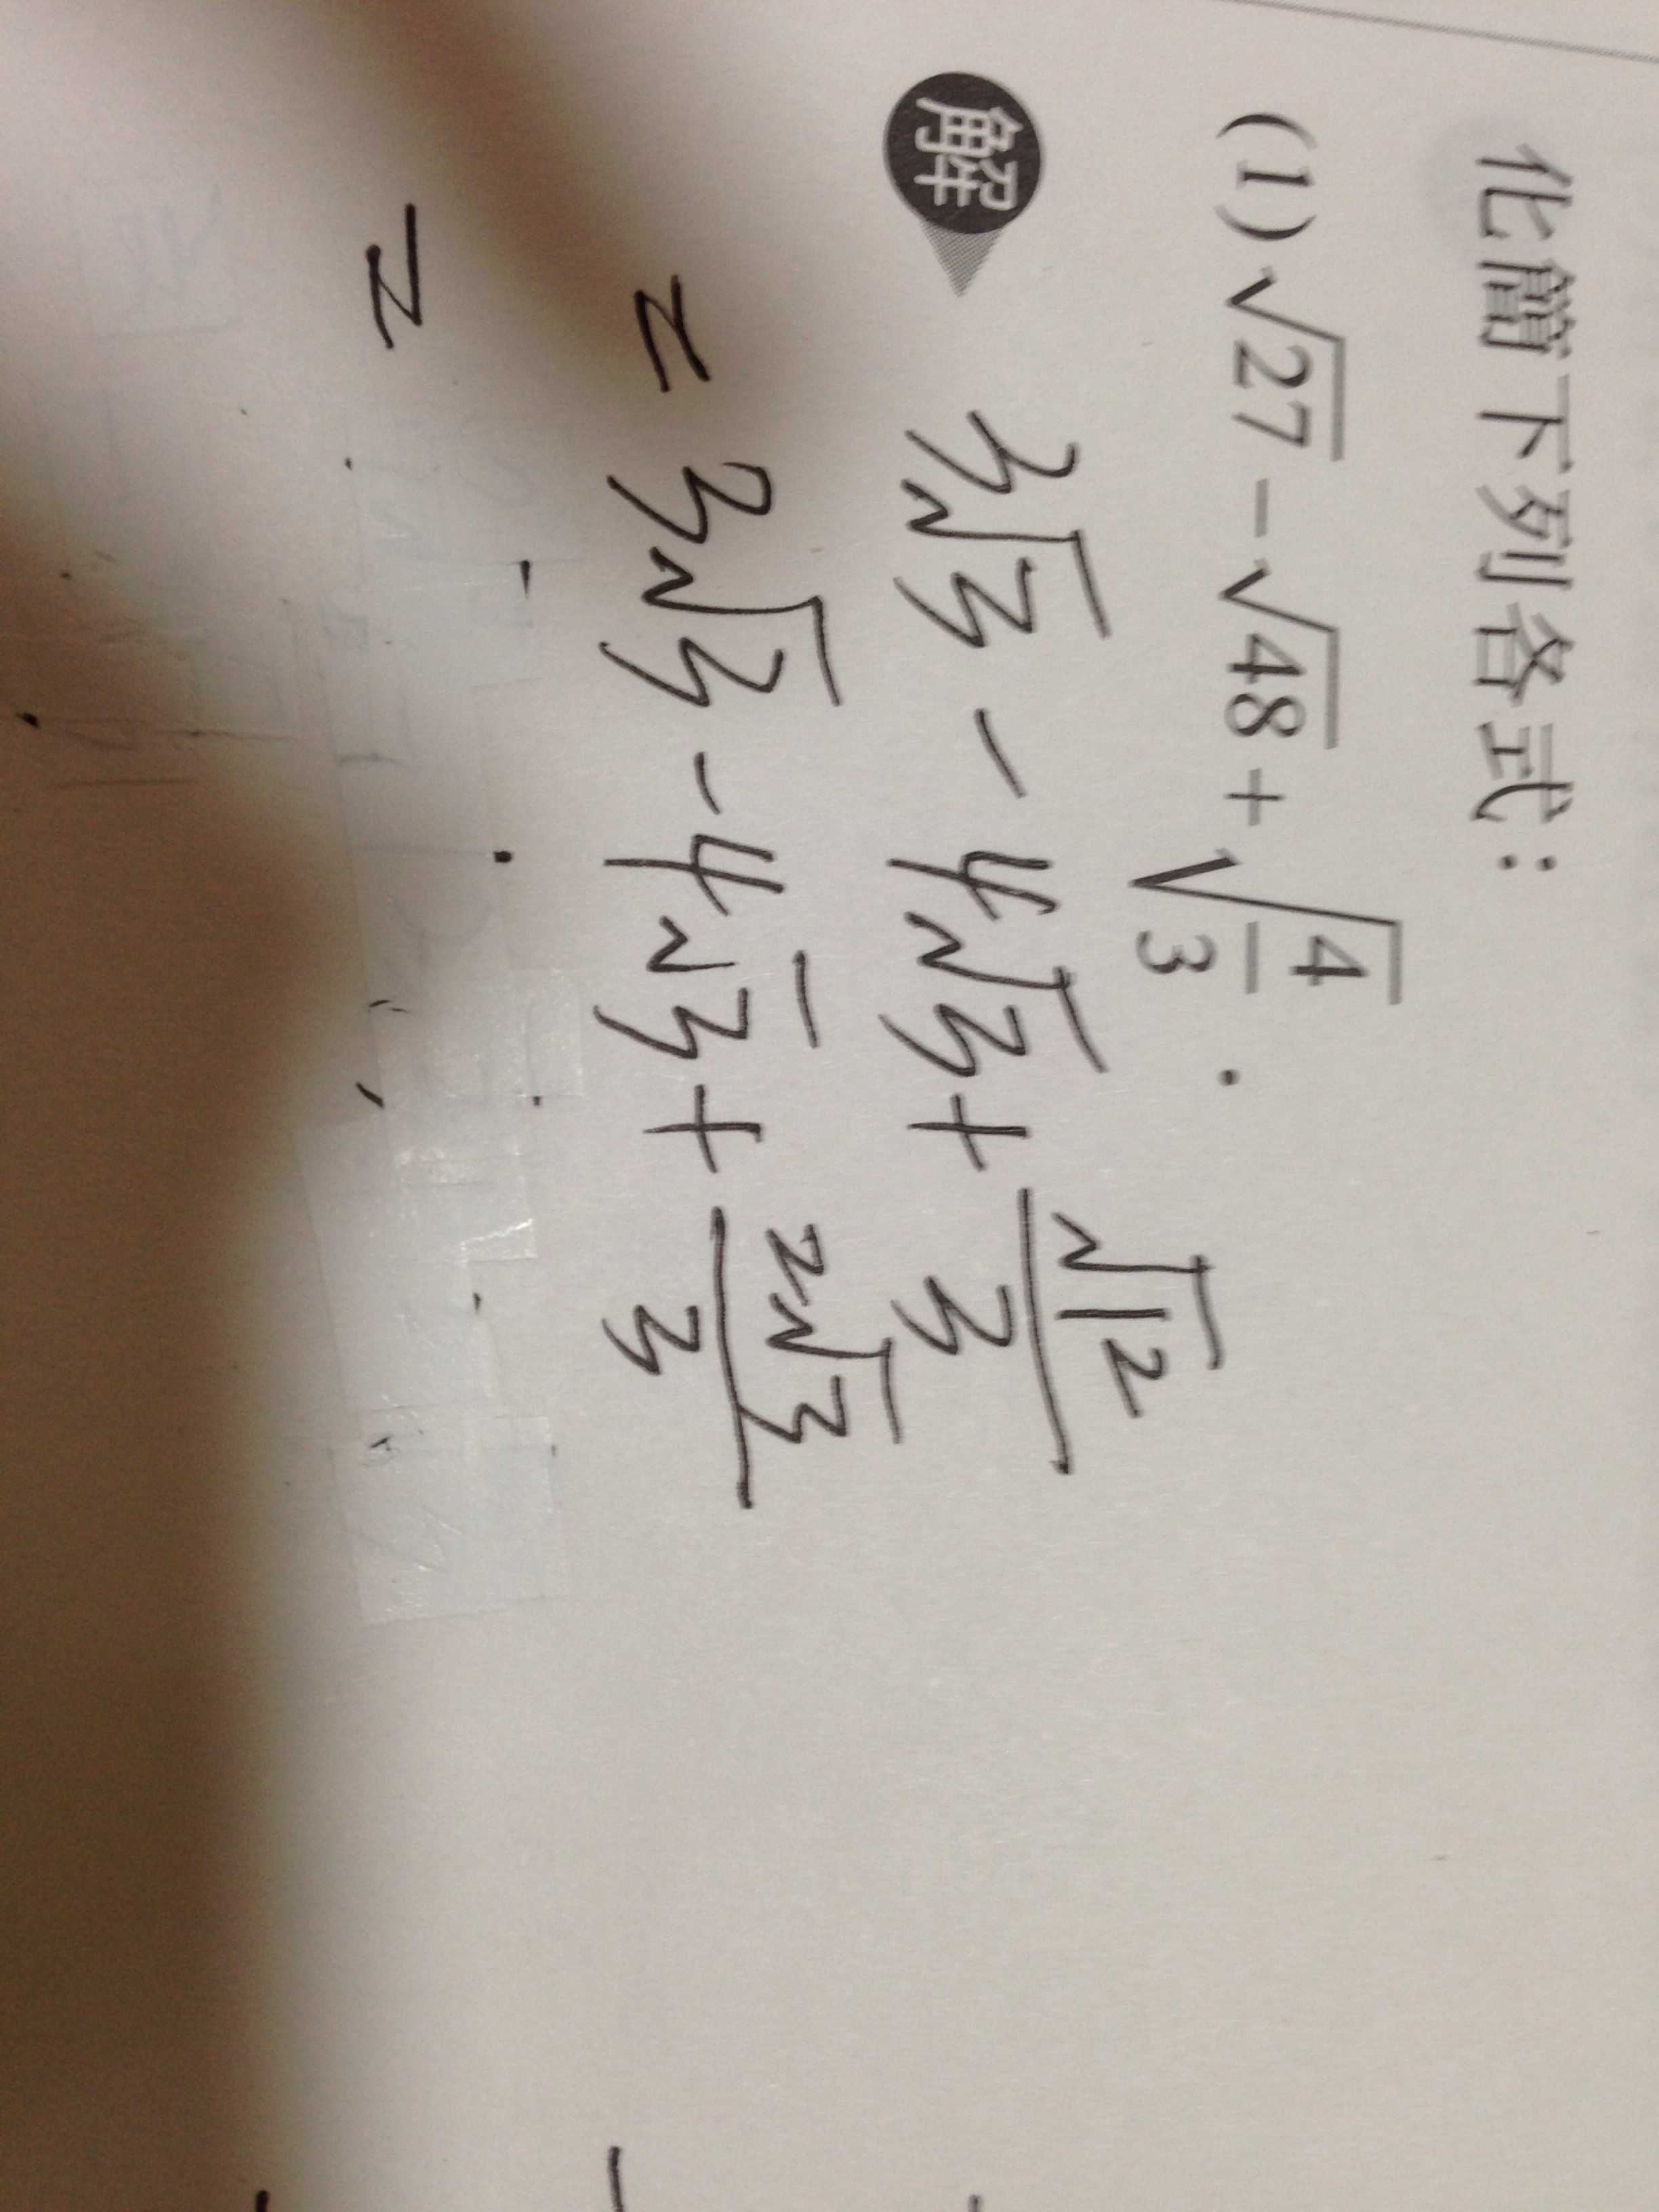 化簡下列各式：
(1) √27 − √48 + √(4/3) .
解 3√3 − 4√3 + √12/3
= 3√3 − 4√3 + 2√3/3
=